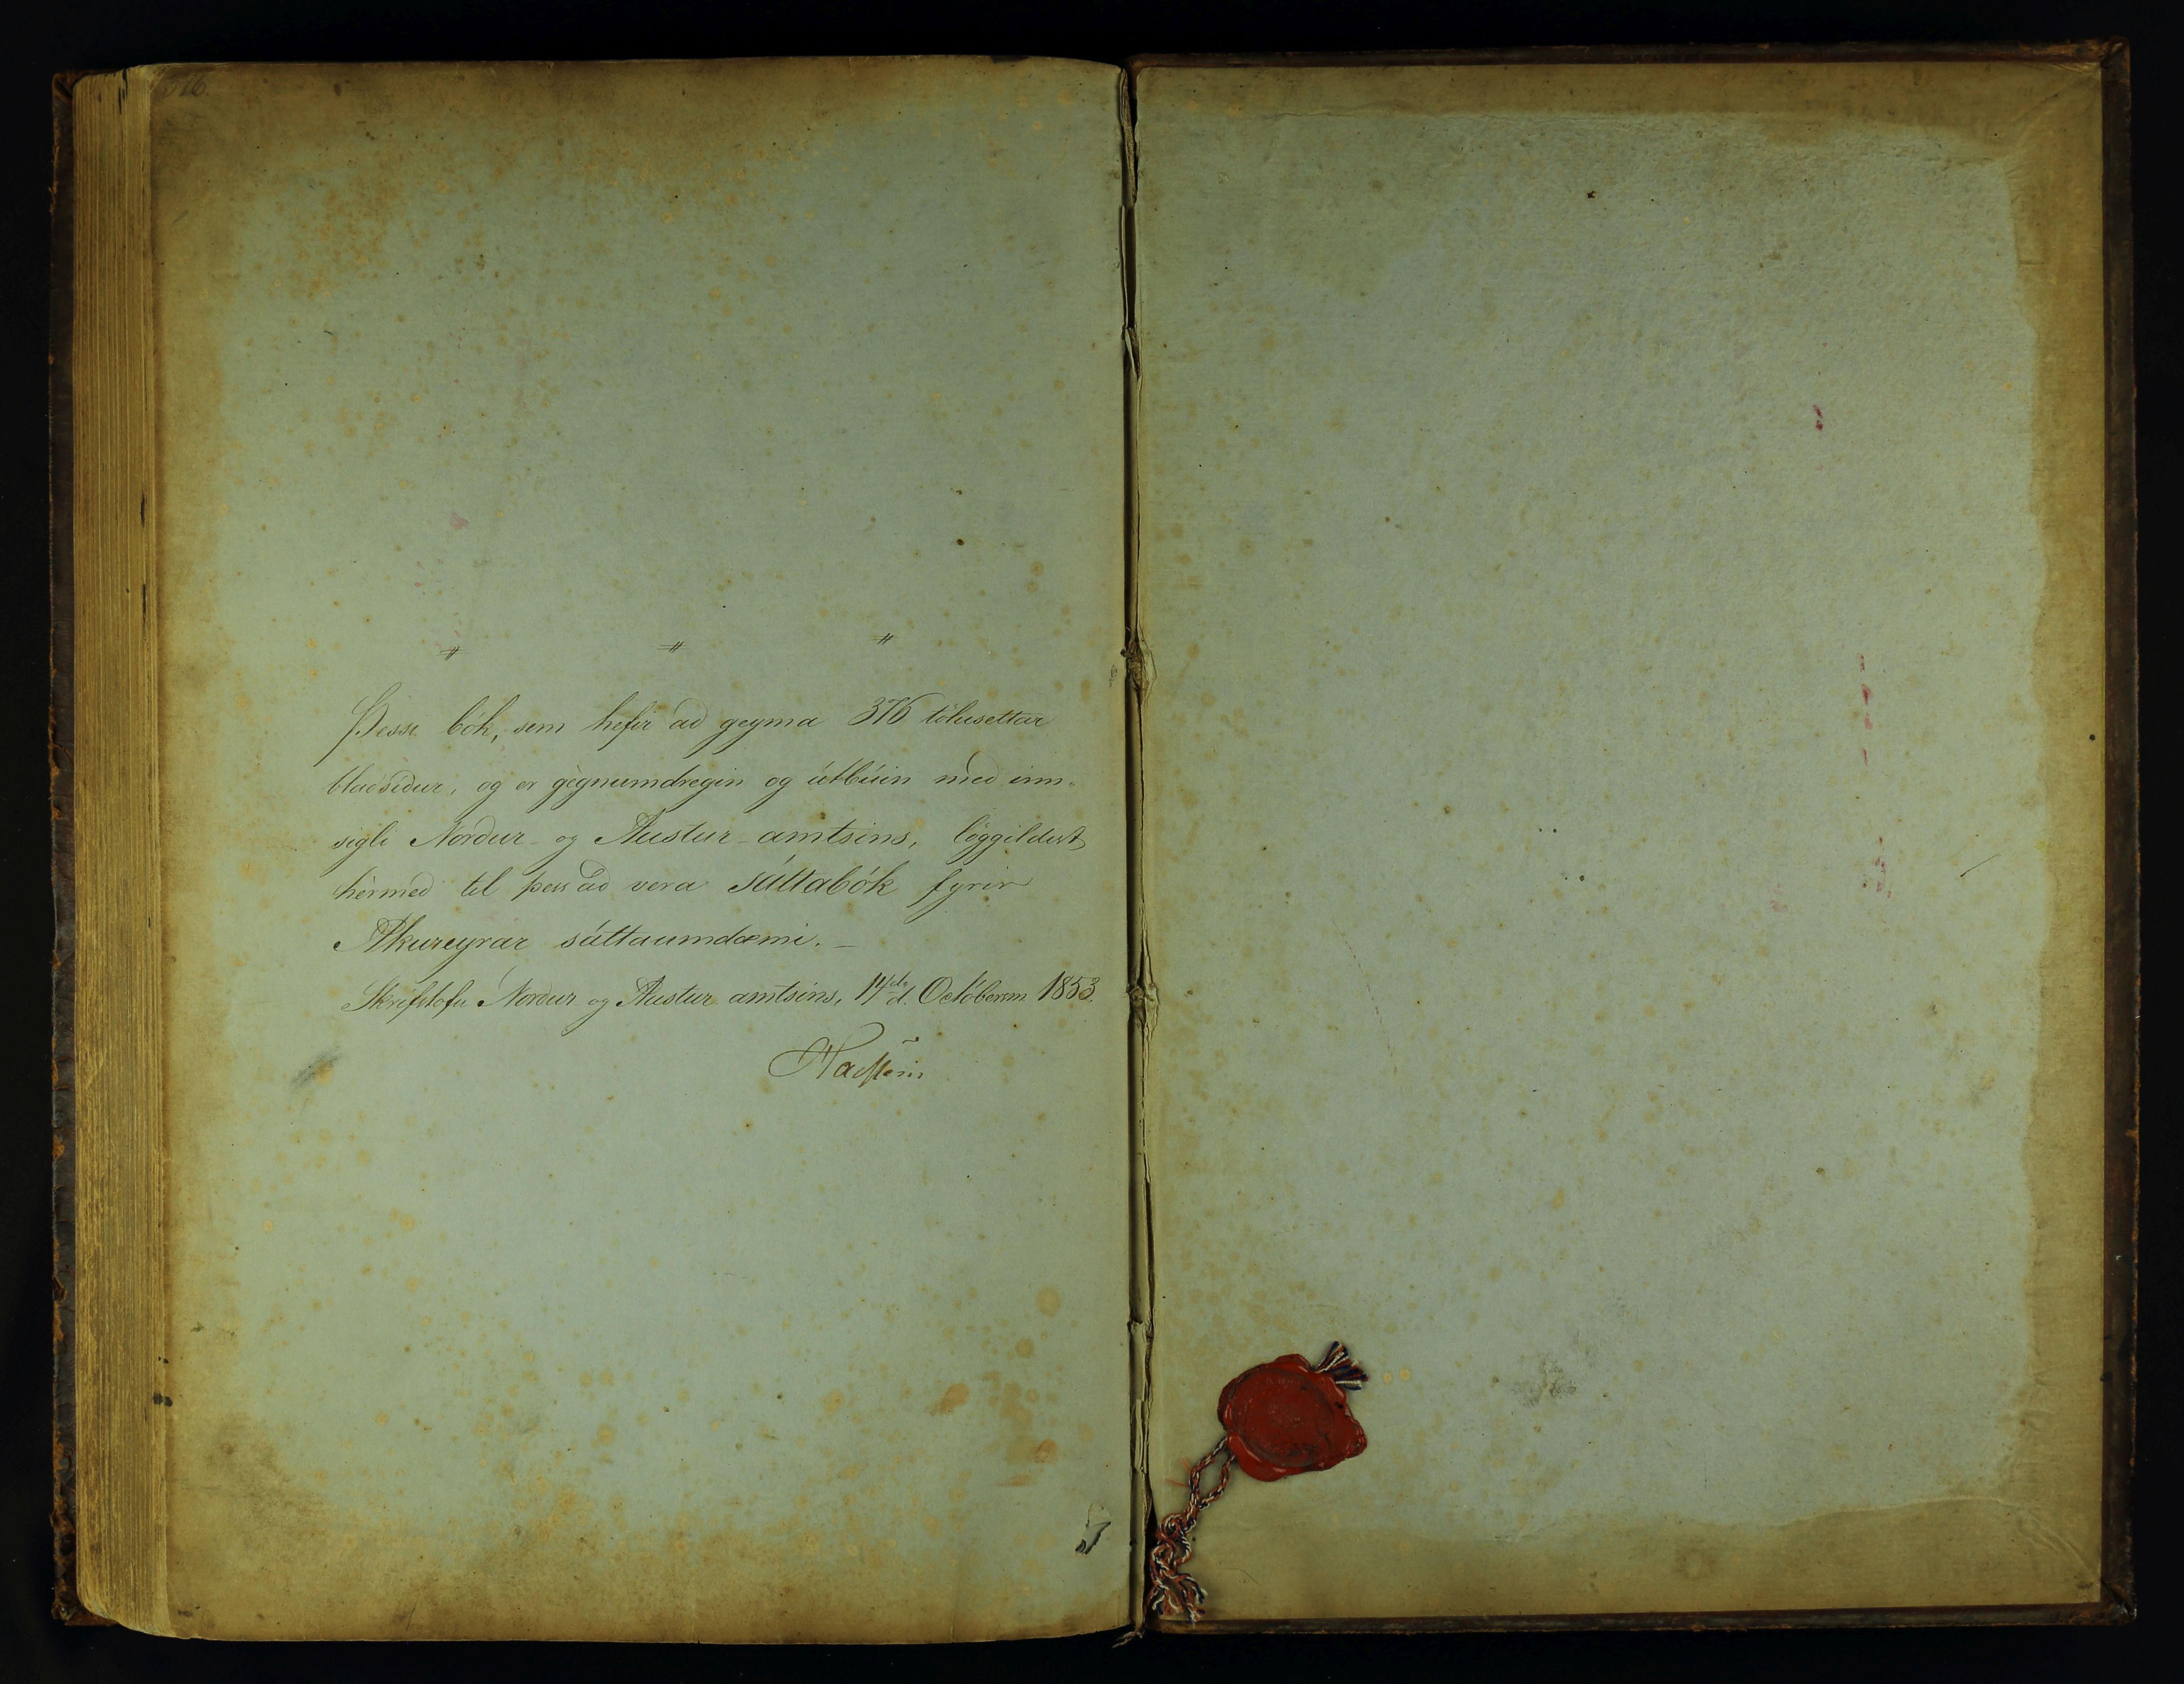 376.
〃 〃 〃
Þessi bók, sem hefir að geyma 376 tölusettar
blaðsíður, og er gègnumdregin og útbúin með inn-
sigli Norður- og Austur-amtsins, löggildist
hèrmeð til þess að vera sáttabók fyrir
Akureyrar sáttaumdæmi. –
Skrifstofu Norður og Austur amtsins, 14da d. Octóberm 1853.
Havstein